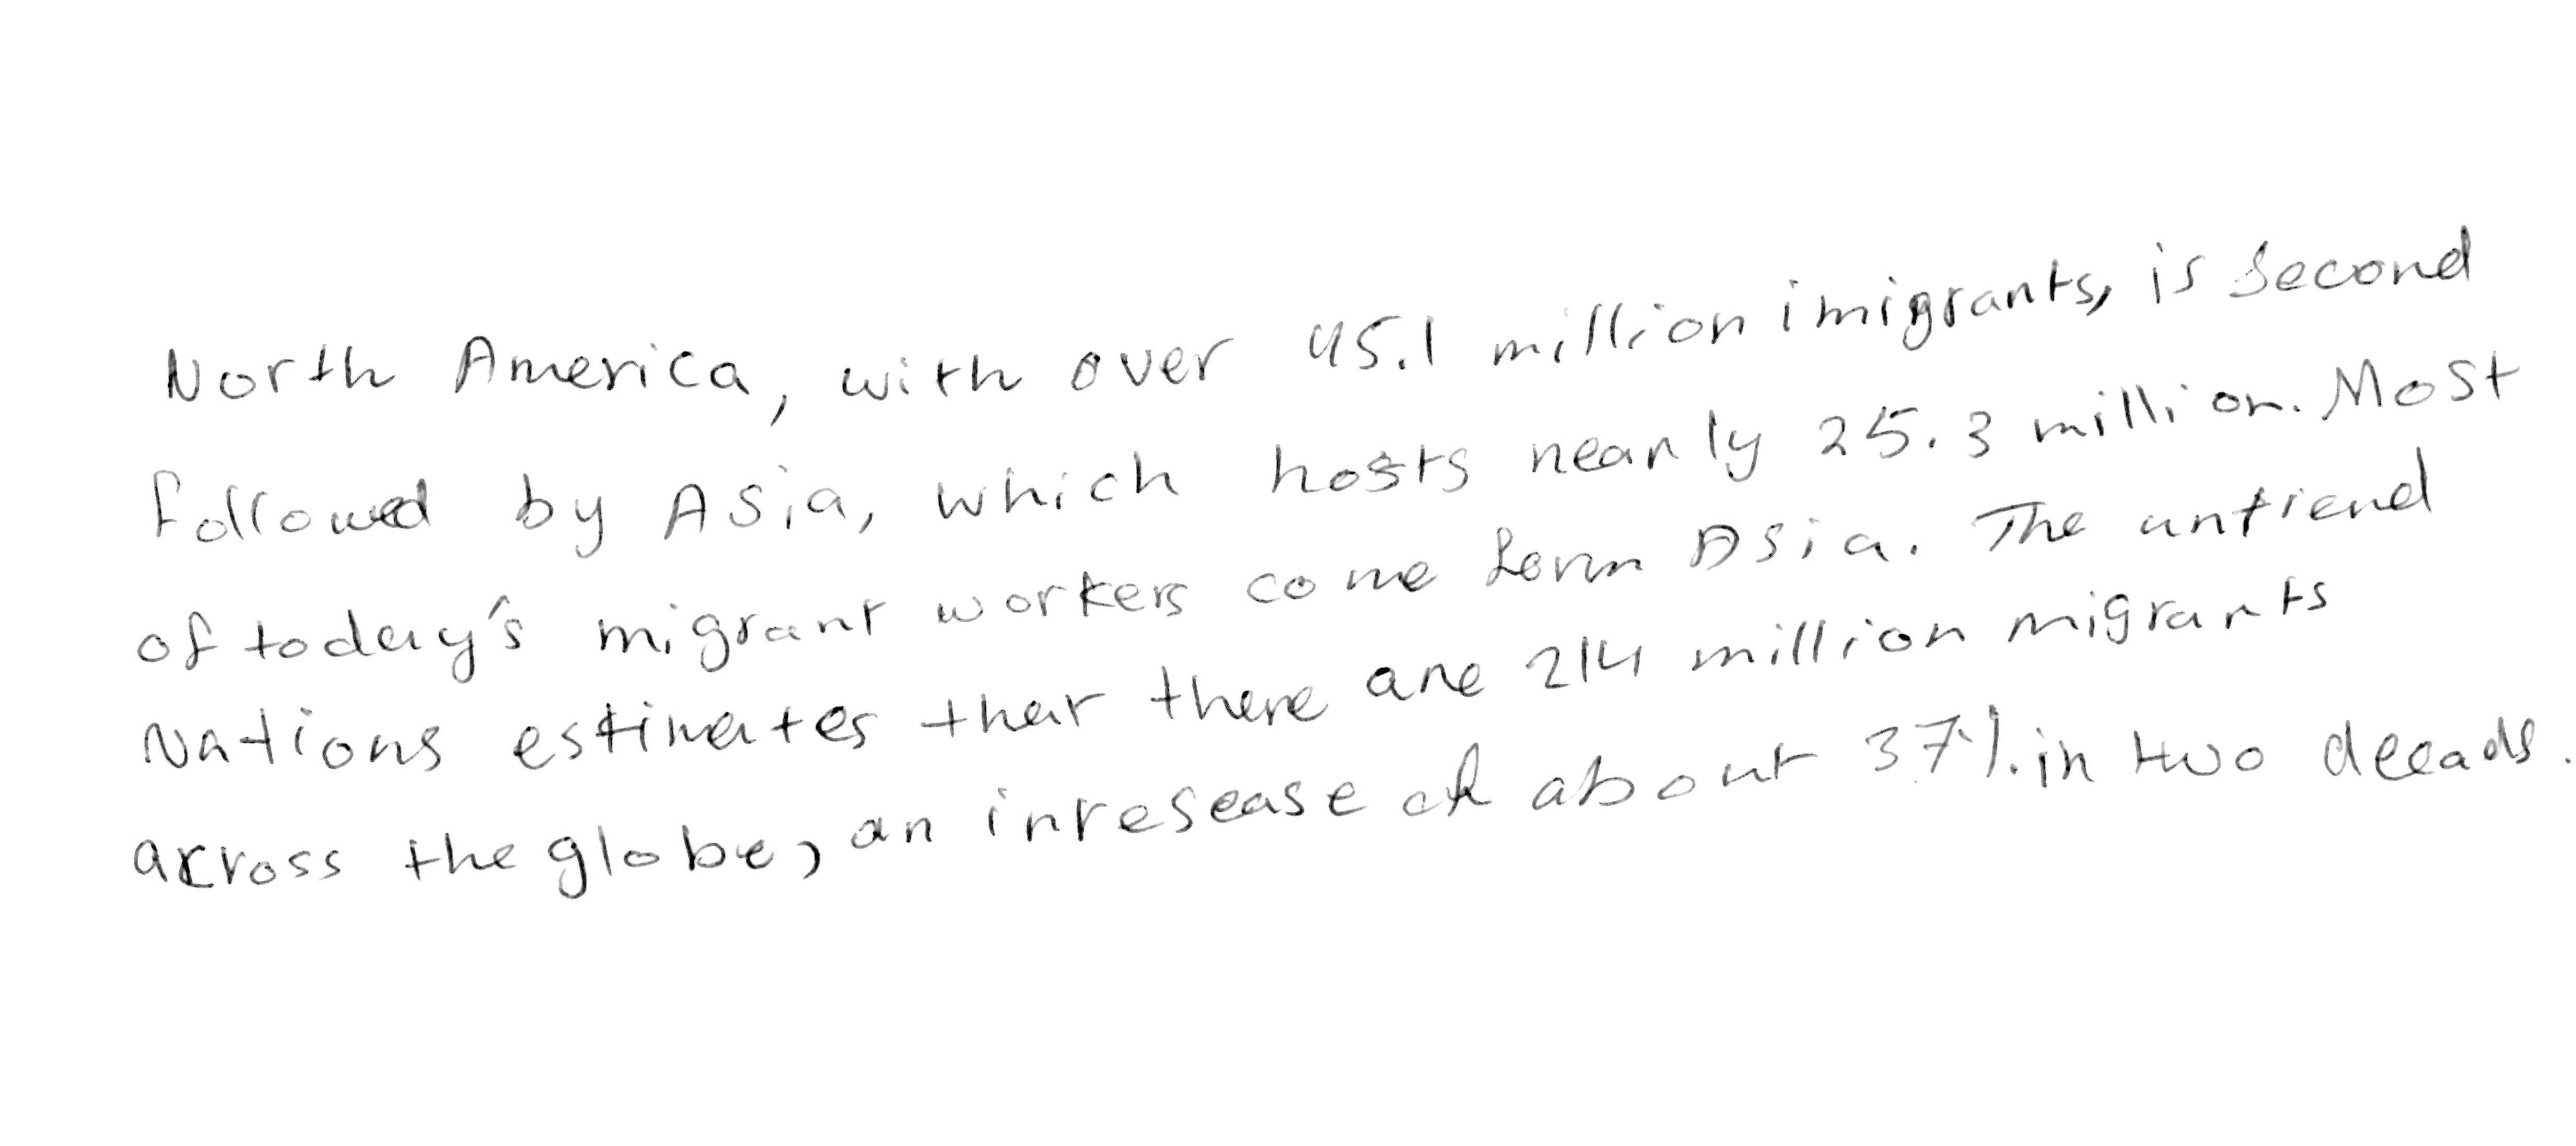 North America, with over 45.1 million imigrants, is second
followed by Asia, which hosts nearly 25.3 million. Most
of today's migrant workers come Asia. The
Nations estimates that there are 214 million migrants
across the globe, an inresease of about 37% in two decads.